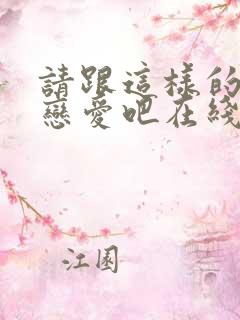 請跟這樣的
戀愛吧在綫
江園